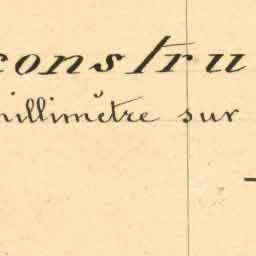 constru
millimètre sur